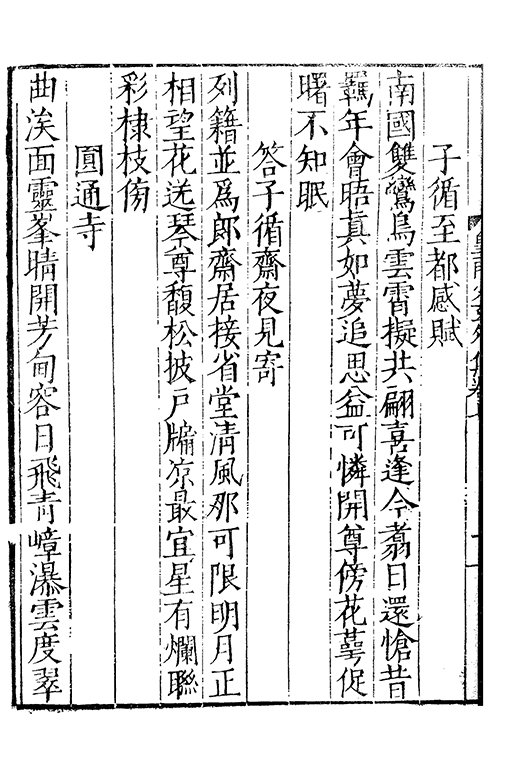 子循至都感賦
南國雙鸞鳥雲霄擬共翩喜逢今翥日還愴昔
羈年會晤真如夢追思益可憐開尊傍花萼促
曙不知眠
答子循齋夜見寄
列籍並爲郎齋居接省堂清風那可限明月正
相望花送琴尊馥松披戸牖凉最宜星有爛聯
彩棣枝傍
圓通寺
曲涘面靈峯晴開芳甸容日飛青嶂瀑雲度翠